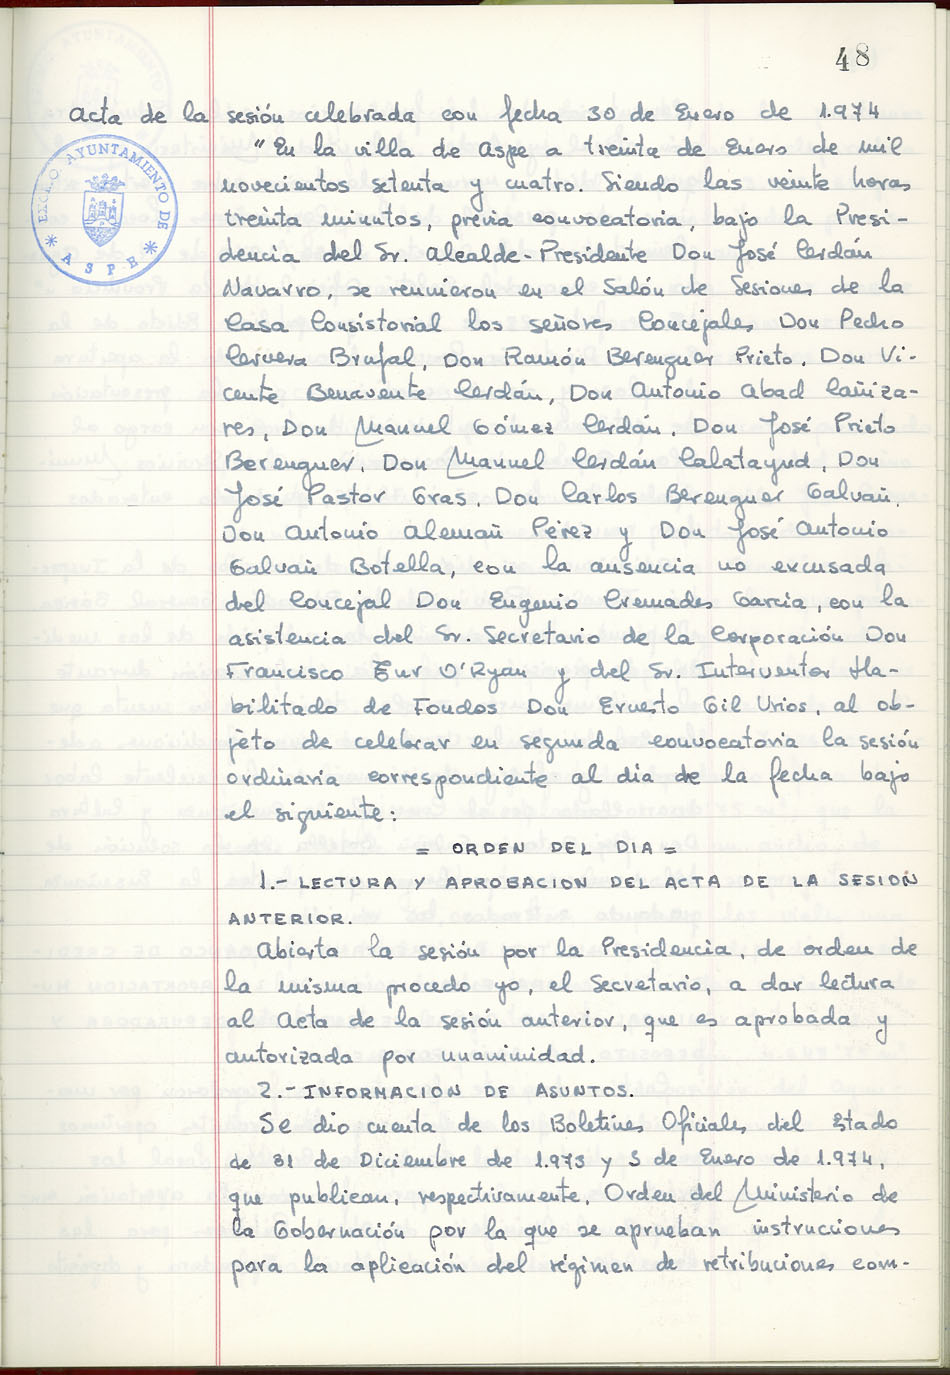 48
Acta de la sesión celebrada con fecha 30 de Enero de 1.974
EXCLO. AYUNTAMIENTO DE
* ASPE *
"En la villa de Aspe a treinta de Enero de mil
novecientos setenta y cuatro. Siendo las veinte horas
treinta minutos, previa convocatoria, bajo la Presi-
dencia del Sr. Alcalde-Presidente Don José Cerdán
Navarro, se reunieron en el Salón de Sesiones de la
Casa Consistorial los señores Concejales Don Pedro
Cervera Brufal, Don Ramón Berenguer Prieto, Don Vi-
cente Benavente Cerdán, Don Antonio Abad Cañiza-
res, Don Manuel Gómez Cerdán, Don José Prieto
Berenguer, Don Manuel Cerdán Calatayud, Don
José Pastor Gras, Don Carlos Berenguer Galvañ,
Don Antonio Alemañ Pérez y Don José Antonio
Galvañ Botella, con la ausencia no excusada
del Concejal Don Eugenio Cremades García, con la
asistencia del Sr. Secretario de la Corporación Don
Francisco Eur O'Ryan y del Sr. Interventor Ha-
bilitado de Fondos Don Ernesto Gil Urios, al ob-
jeto de celebrar en segunda convocatoria la sesión
ordinaria correspondiente al dia de la fecha bajo
el siguiente:
= ORDEN DEL DIA =
1.- LECTURA Y APROBACION DEL ACTA DE LA SESION
ANTERIOR.
Abierta la sesión por la Presidencia, de orden de
la misma procedo yo, el Secretario, a dar lectura
al Acta de la sesión anterior, que es aprobada y
autorizada por unanimidad.
2.- INFORMACION DE ASUNTOS.
Se dio cuenta de los Boletines Oficiales del Estado
de 31 de Diciembre de 1.973 y 5 de Enero de 1.974,
que publican, respectivamente, Orden del Ministerio de
la Gobernación por la que se aprueban instrucciones
para la aplicación del régimen de retribuciones com-